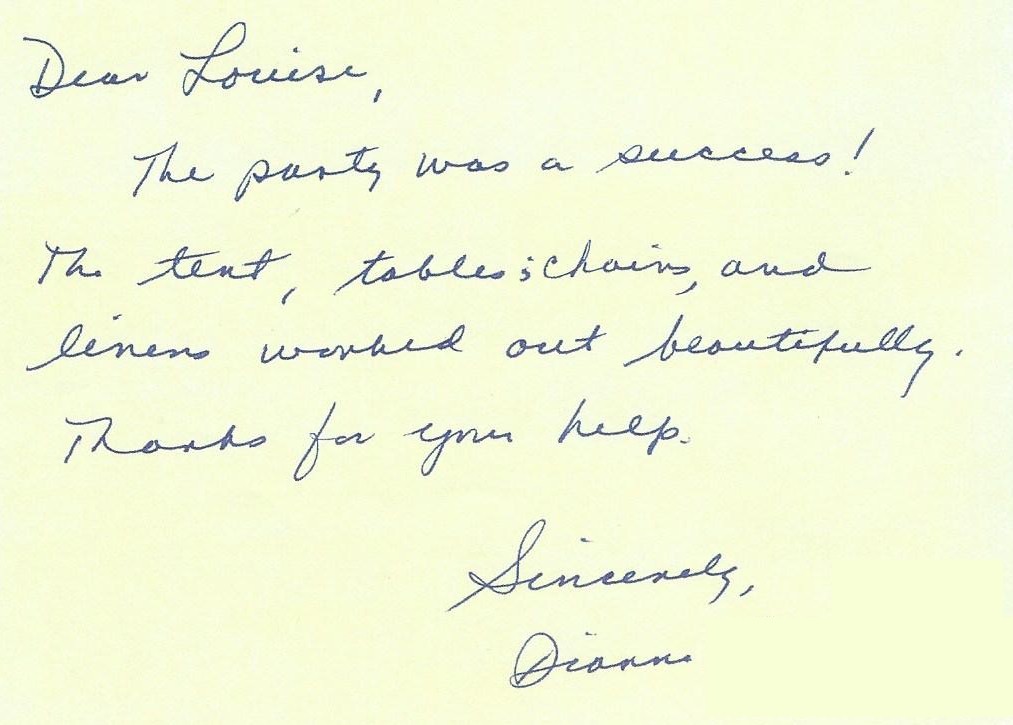 Dear Louise,
The party was a success!
The tent, tables & chairs, and
linens worked out beautifully.
Thanks for your help.
Sincerely,
Dianne